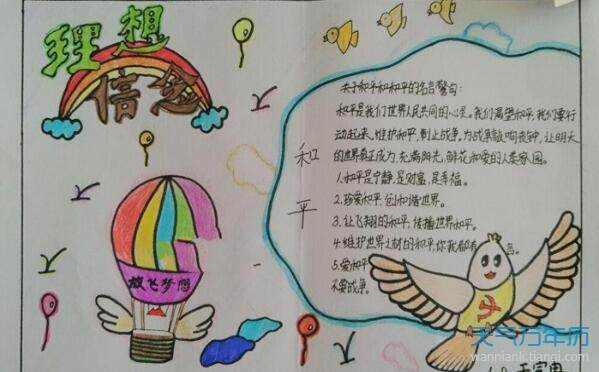 理想
信念
放飞梦想
和
平
关于和平和和平的名言警句:
和平是我们世界人民共同的心灵。我们渴望和平,我们要行
动起来,维护和平,制止战争。为战争敲响丧钟,让明天
的世界真正成为,充满阳光,鲜花和爱的人类家园。
1.和平是宁静,是财富,是幸福。
2.珍爱和平,创和谐世界。
3.让飞翔的和平,传播世界和平。
4.维护世界之林的和平,你我都有
5.爱和平
不要战争。
天气万年历
wannianli.tianqi.com